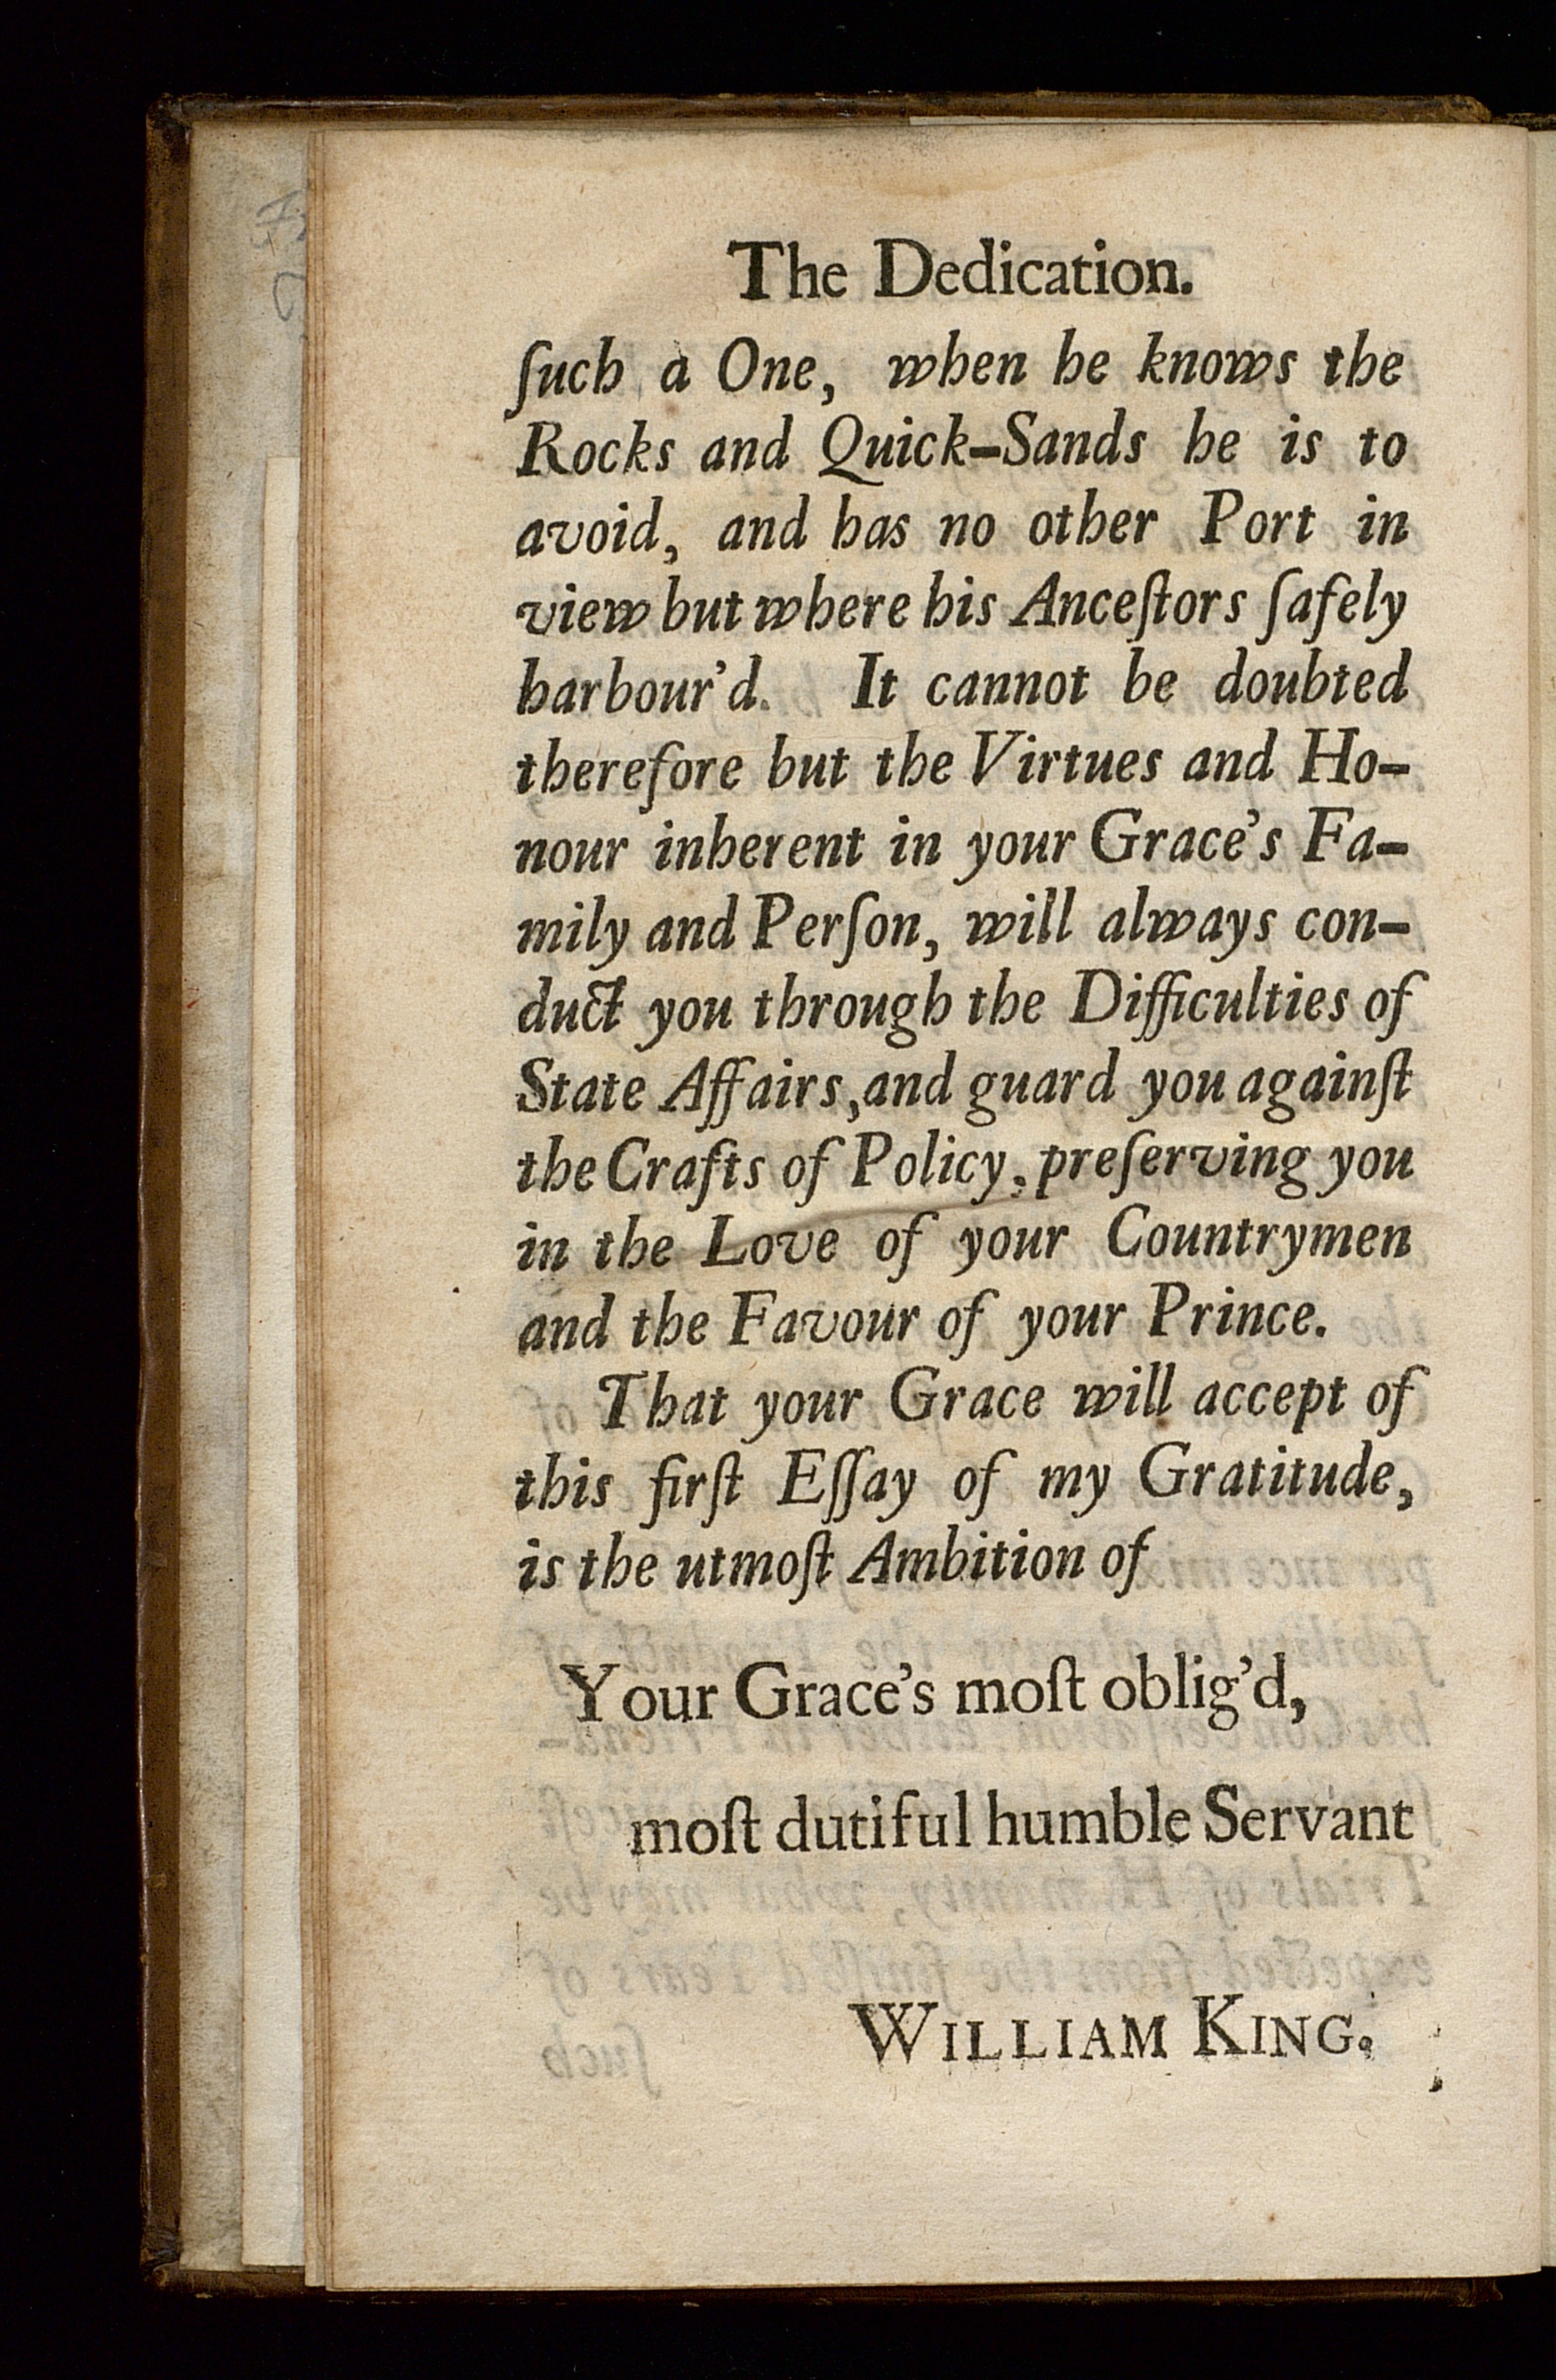 The Dedication.
ſuch a One, when he knows the
Rocks and Quick-Sands he is to
avoid, and has no other Port in
view but where his Anceſtors ſafely
harbour'd. It cannot be doubted
therefore but the Virtues and Ho-
nour inherent in your Grace's Fa-
mily and Perſon, will always con-
duct you through the Difficulties of
State Affairs, and guard you againſt
the Crafts of Policy, preſerving you
in the Love of your Countrymen
and the Favour of your Prince.
That your Grace will accept of
this firſt Eſſay of my Gratitude,
is the utmoſt Ambition of
Your Grace's moſt oblig'd,
moſt dutiful humble Servant
WILLIAM KING.